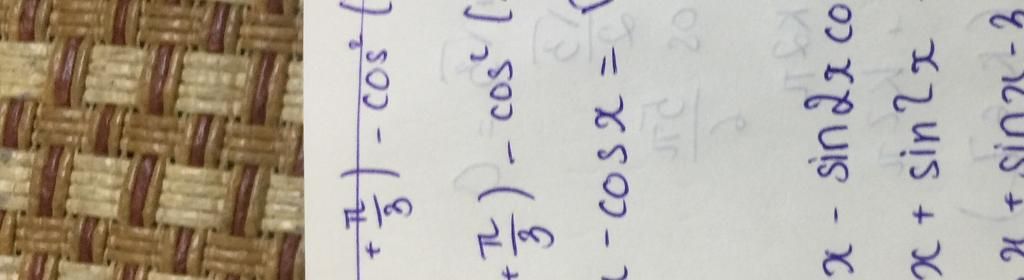 + π/3) - cos² (
+ π/3) - cos² (
- cos x = (
x - sin 2x co
x + sin 2x
x + sin x - 3